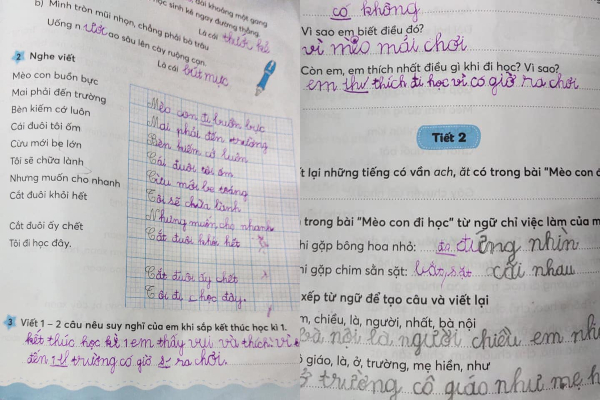 dài khoảng một gang
học sinh kẻ ngay đường thẳng.
Là cái thước kẻ
b) Mình tròn mũi nhọn, chẳng phải bò trâu
Uống nước ao sâu lên cày ruộng cạn.
Là cái bút mực
2 Nghe viết
Mèo con buồn bực
Mai phải đến trường
Bèn kiếm cớ luôn
Cái đuôi tôi ốm
Cừu mới be lớn
Tôi sẽ chữa lành
Nhưng muốn cho nhanh
Cắt đuôi khỏi hết
Cắt đuôi ấy chết
Tôi đi học đây.
Mèo con đi buồn bực
Mai phải đến trường
Bèn kiếm cớ luôn
Cái đuôi tôi ốm
Cừu mới be
Tôi sẽ chữa lành
Nhưng muốn cho nhanh
Cắt đuôi khỏi hết
Cắt đuôi ấy chết
Tôi đi học đây.
3 Viết 1 – 2 câu nêu suy nghĩ của em khi sắp kết thúc học kì 1.
kết thúc học kì 1 em thấy vui và thích vì
đến trường có giờ ra chơi.
có không
Vì sao em biết điều đó?
vì mèo mải chơi
Còn em, em thích nhất điều gì khi đi học? Vì sao?
em thích đi học vì có giờ ra chơi
Tiết 2
lại những tiếng có vần ach, ăt có trong bài "Mèo con đ
trong bài "Mèo con đi học" từ ngữ chỉ việc làm của m
hi gặp bông hoa nhỏ: đứng nhìn
hi gặp chim sẻ sặt: cãi nhau
xếp từ ngữ để tạo câu và viết lại
m, chiều, là, người, nhất, bà nội
bà nội là người chiều em nh
giáo, là, ở, trường, mẹ hiền, như
ở trường cô giáo như mẹ h